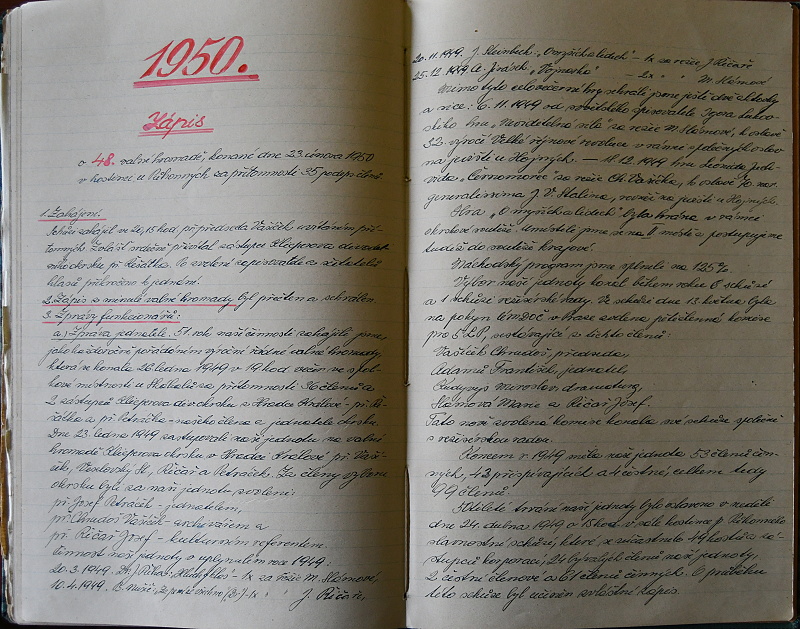 1950.
Zápis
o 48. valné hromadě, konané dne 23. února 1950
v hostinci u Říhonných za přítomnosti 35 podepsaných
1. Zahájení.
Schůzi zahájil ve 20,15 hod. př. předseda Vašíček uvítáním pří-
tomných. Zvlášť srdečně přivítal zástupce Klicperova divadel-
ního okrsku př. Řezátka. Po zvolení zapisovatele a sčitatelů
hlasů přikročeno k jednání.
2. Zápis z minulé valné hromady byl přečten a schválen.
3. Zprávy funkcionářů:
a.) Zpráva jednatele. 51. rok naší činnosti zahájili jsme,
jako každoročně pořádáním výroční řádné valné hromady,
která se konala 26. ledna 1949 v 19 hod. večer ve spol-
kové místnosti u za přítomnosti 36 členů a
2 zástupců Klicperova div. okrsku z Hradce Králové - př.
a př. Petráčka - našeho člena a jednatele okrsku.
Dne 23. ledna 1949 zastupovali naši jednotu na valné
hromadě Klicperova okrsku v Hradci Králové př. Vaší-
ček, Veselský St., Říčař a Petráček. Za členy výboru
okrsku byli za naši jednotu zvoleni:
př. Josef Petráček - jednatelem,
př. Chrudoš Vašíček - archivářem a
př. Říčař Josef - kulturním referentem.
Činnost naší jednoty v uplynulém roce 1949:
20.3.1949. - 1x za režie M. Slámové,
10.4.1949. B. Nušič: - 1x " " J. Říčaře,
20.11.1949. J. Steinbeck: „O myších a lidech" - 1x za režie J. Říčaře
25.12.1949 A. Jirásek: „Vojnarka" - 2x " " M. Slámové
Mimo tyto celovečerní hry sehráli jsme ještě dvě aktovky
a sice: 6.11.1949 od sovětského spisovatele Igora
hru „Neviditelná síla" za režie M. Slámové, k oslavě
32. výročí Velké říjnové revoluce v rámci společných oslav
na jevišti u Hojných. - 18.12.1949 hru Leonida
„Černomorci" za režie Ch. Vašíčka, k oslavě 70. nar.
generalissima J. V. Stalina, rovněž na jevišti u Hojných.
Hra „O myších a lidech" byla hrána v rámci
okrskové soutěže. Umístěli jsme se na II. místě a postupujeme
tudíž do soutěže krajové.
Náchodský program jsme splnili na 125%.
Výbor naší jednoty konal během roku 8 schůzí
a 1 schůzi režisérské rady. Ve schůzi dne 13. května byla
na pokyn ÚMDOČ v Praze zvolena pětičlenná komise
pro 5LP, sestávající z těchto členů:
Vašíček Chrudoš, předseda,
Adamů František, jednatel,
Miroslav, dramaturg,
Slámová Marie a Říčař Josef.
Tato nově zvolená komise konala své schůze společně
s režisérskou radou.
Koncem r. 1949 měla naše jednota 53 členů čin-
ných, 42 přispívajících a 4 čestné, celkem tedy
99 členů.
50tileté trvání naší jednoty bylo oslaveno v neděli
dne 24. dubna 1949 o 15 hod. v sále hostince p. Říhonného
slavnostní schůzí, které se zúčastnilo 49 hostí a zá-
stupců korporací, 21 bývalých členů naší jednoty,
2 čestní členové a 61 členů činných. O průběhu
této schůze byl učiněn zvláštní zápis.